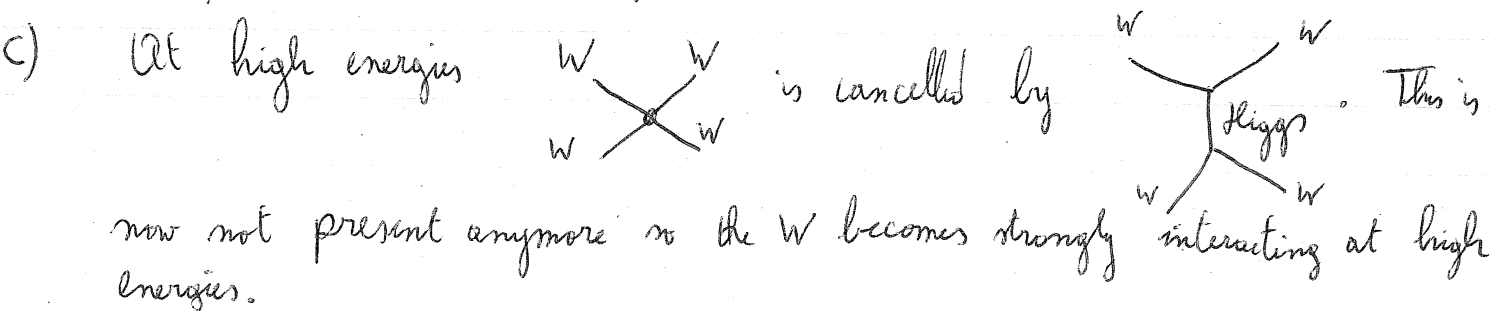 c) At high energies W W W W is cancelled by W W Higgs W W . This is
now not present anymore so the W becomes strongly interacting at high
energies.